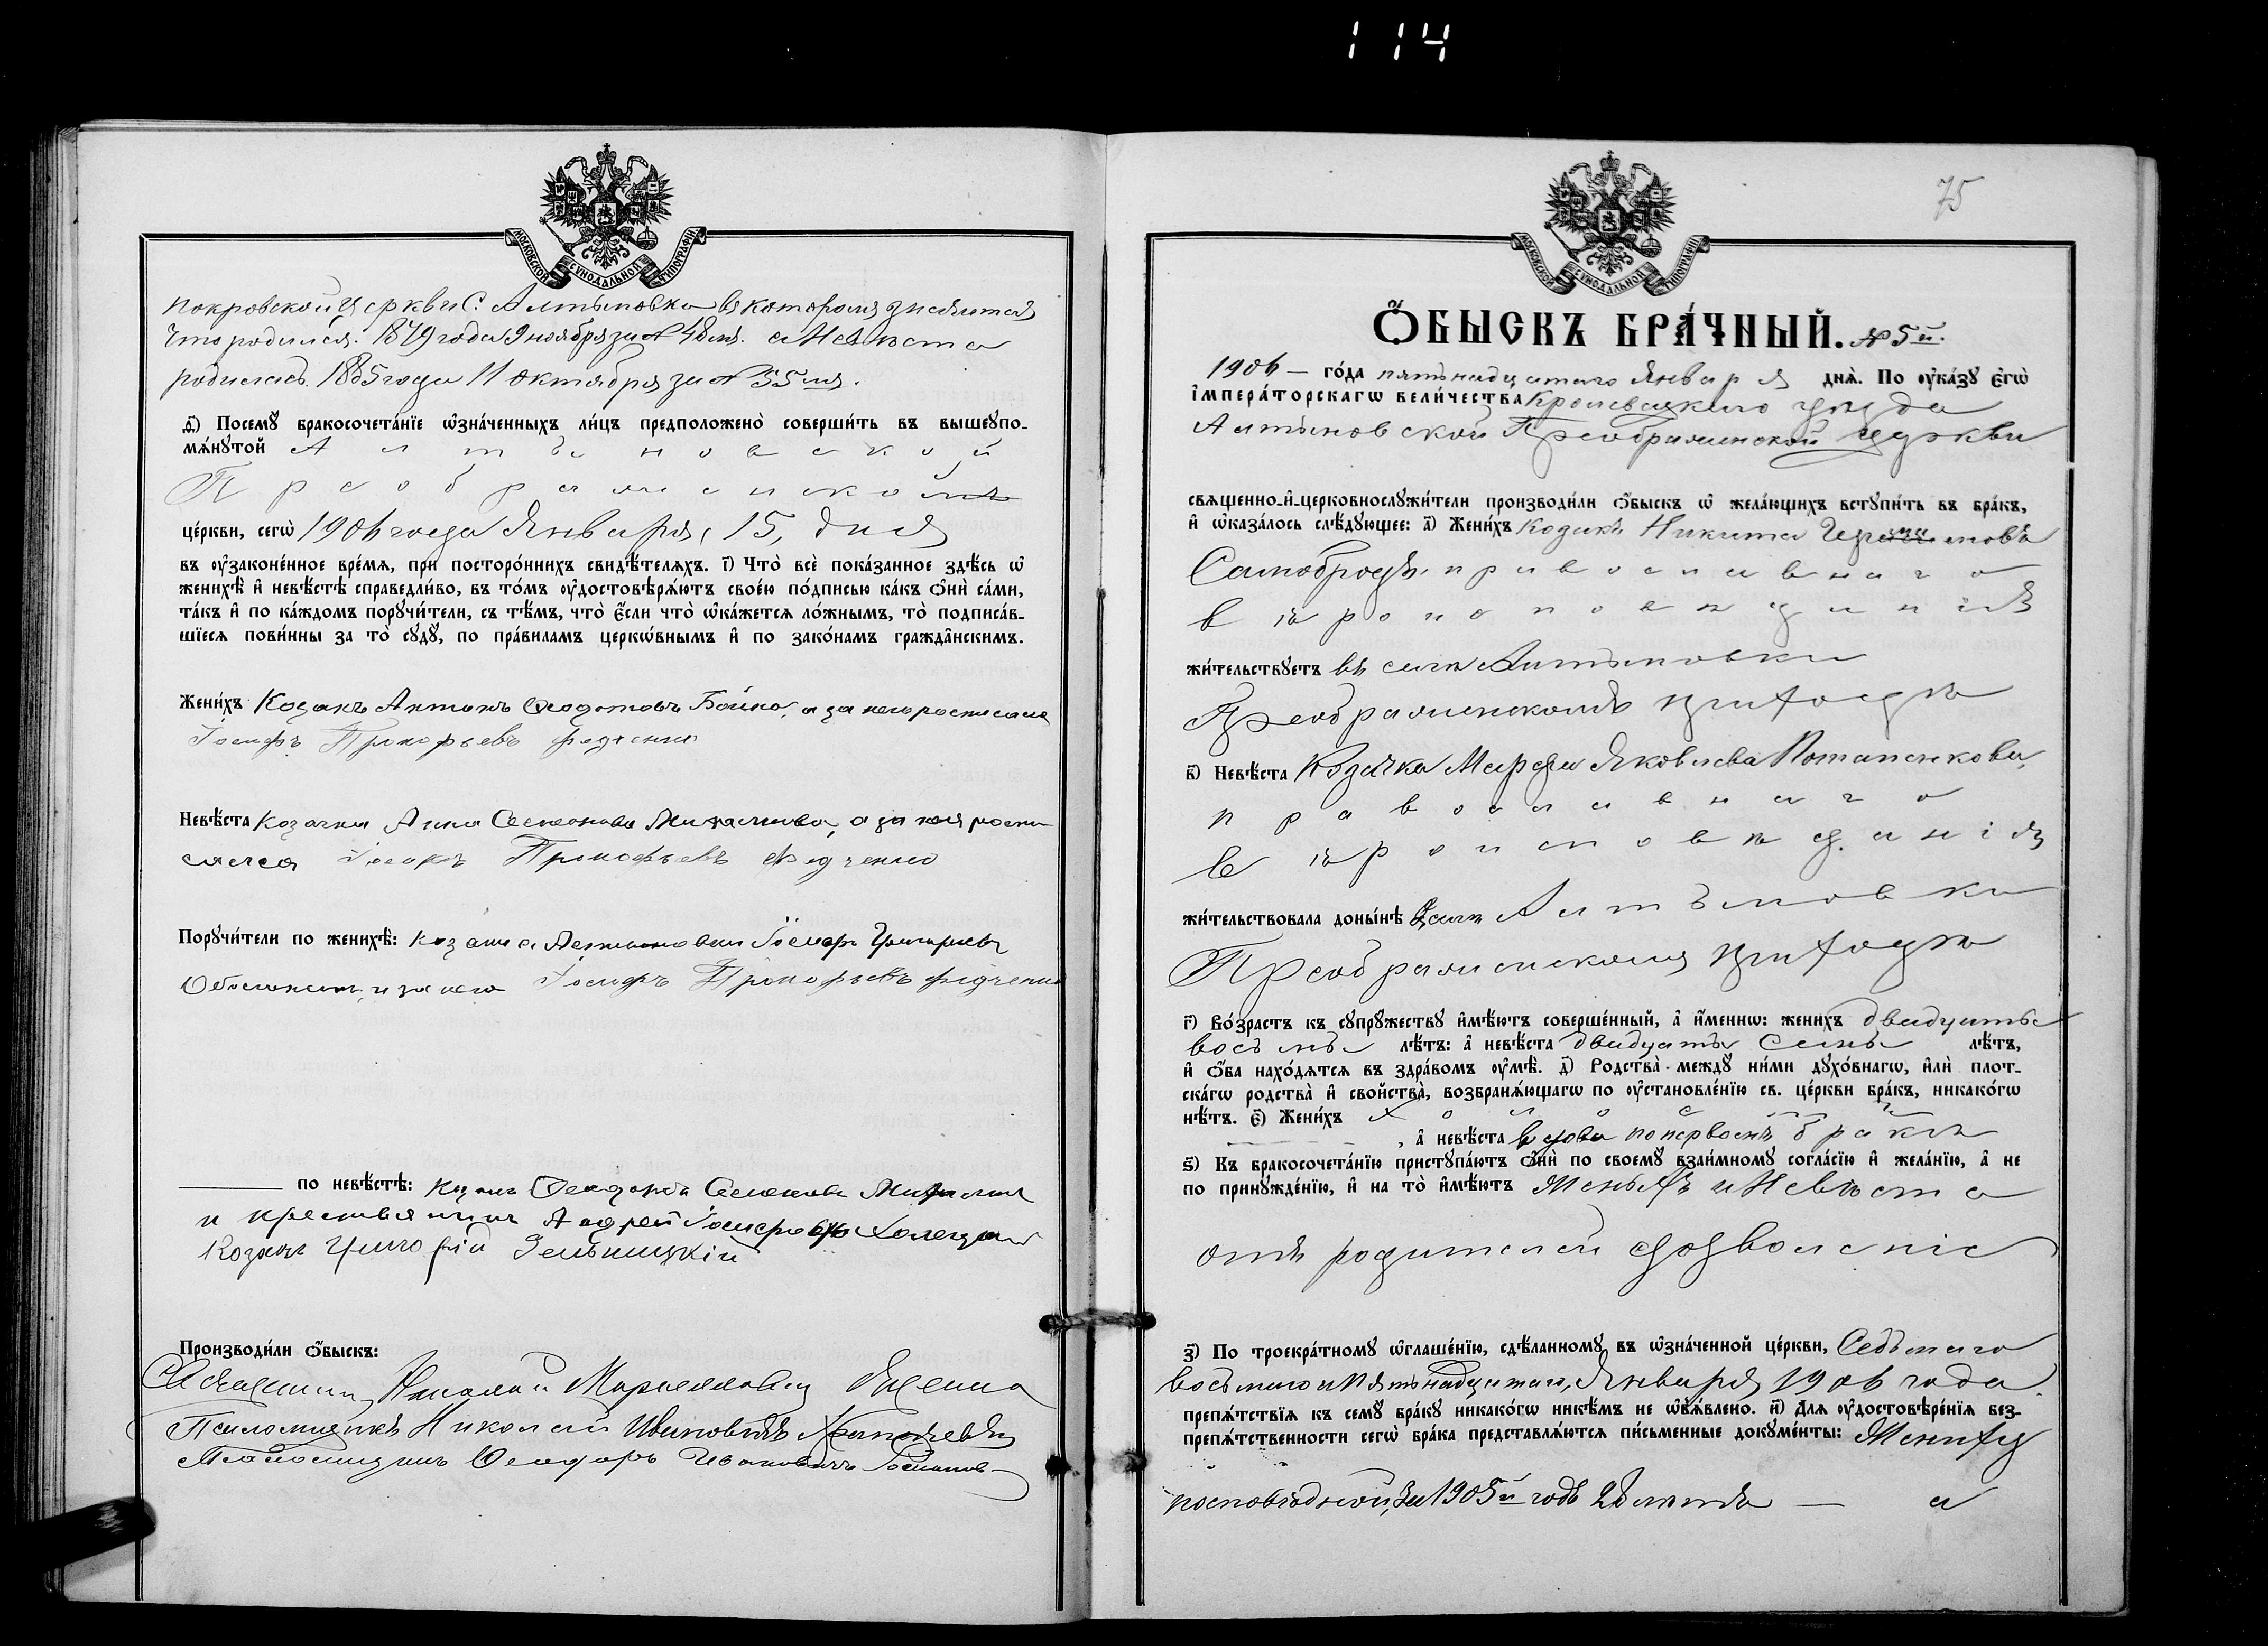 114
МОСКОВСКОЙ СѴНОДАЛЬНОЙ ТИПОГРАФІИ
Покровской церкви С: Алтыновка въ котором значится
что родился: 1879 года 9 ноября за № 48мъ. а Невѣста
родилась 1885 года 11 октября за № 55мъ.
д҃і) Посемꙋ̀ бракосочета́нїе ѡ҆зна́ченныхъ ли́цъ предположено̀ соверши́ть въ вышеупо-
мѧ́нꙋтой Алтыновской
Преображенской
це́ркви, сегѡ̀ 1906 года Января, 15, дня
въ ᲂу҆законе́нное вре́мѧ, при посторо́ннихъ свидѣ́телѧхъ. і҃) Что̀ всѐ пока́занное здѣ́сь ѡ҆
женихѣ̀ и҆ невѣ́стѣ справедли́во, въ то́мъ ᲂу҆достовѣрѧ́ютъ свое́ю по́дписью ка́къ ѻ҆нѝ са́ми,
та́къ и҆ по ка́ждомъ порꙋчи́тели, съ тѣ́мъ, что̀ є҆́сли что̀ ѡ҆ка́жетсѧ ло́жнымъ, то̀ подписа́в-
шїесѧ пови́нны за то̀ сꙋдꙋ̀, по пра́виламъ церкѡ́внымъ и҆ по зако́намъ гражда̑нскимъ.
Жени́хъ Козакъ Антонъ Ѳеодотовъ Бойко, а за него росписался
Іосифъ Прокофьевъ Федченко
Невѣ́ста Козачка Анна Семенова а за нея роспи
сался Іосифъ Прокофьевъ Федченко
Порꙋчи́тели по женихѣ̀: Іосифъ Григорьевъ
и за него Іосифъ Прокофьевъ Федченко
по невѣ́стѣ: Козакъ Ѳеодоръ Семеновъ
и крестьянинъ Андрей Іосифовъ
Козакъ Григорій Зельницкій
Производи́ли ѻ҆́быскъ:
Священникъ Николай
Псаломщикъ Николай Ивановичъ
Псаломщикъ Ѳеодоръ Ивановичъ
75
МОСКОВСКОЙ СѴНОДАЛЬНОЙ ТИПОГРАФІИ
Ѻ҆́БЫСКЪ БРА́ЧНЫЙ. № 5й.
1906 — го́да пятьнадцатаго Января днѧ̀. По ᲂу҆ка́зꙋ Є҆гѡ̀
І҆мпера́торскагѡ Вели́чества Кролевецкаго уѣзда
Алтыновской Преображенской церкви
свѧще́нно-и҆-церковнослꙋжи́тели производи́ли ѻ҆́быскъ ѡ҆ жела́ющихъ встꙋпи́ть въ бра́къ,
и҆ ѡ҆каза́лось слѣ́дꙋющее: а҃) Жени́хъ Козакъ Никита
Самобродъ, православнаго
вѣроисповѣданія
жи́тельствꙋетъ въ селѣ Алтыновки
Преображенскомъ приходѣ
в҃) Невѣ́ста Козачка Марфа Яковлева Потапенкова
православнаго
вѣроисповѣданія
жи́тельствовала доны́нѣ селѣ Алтыновки
Преображенскомъ приходѣ
г҃) Во́зрастъ къ сꙋпрꙋ́жествꙋ и҆мѣ́ютъ соверше́нный, а҆ и҆́меннѡ: жени́хъ двадцать
восьмь лѣ́тъ: а҆ невѣ́ста двадцать семь лѣ́тъ,
и҆ ѻ҆́ба нахо́дѧтсѧ въ здра́вомъ ᲂу҆мѣ̀. д҃) Родства̀ междꙋ̀ ни́ми дꙋхо́внагѡ, и҆лѝ плот-
ска́гѡ родства̀ и҆ свойства̀, возбранѧ́ющагѡ по ᲂу҆становле́нїю св. це́ркви бра́къ, никако́гѡ
нѣ́тъ. є҃) Жени́хъ Холостой
, а҆ невѣ́ста вдова по первомъ бракѣ
ѕ҃) Къ бракосочета́нїю пристꙋпа́ютъ ѻ҆нѝ по своемꙋ̀ взаи́мномꙋ согла́сїю и҆ жела́нїю, а҆ не
по принꙋжде́нїю, и҆ на то̀ и҆мѣ́ютъ Женихъ и Невѣста
отъ родителей дозволеніе
з҃) По троекра́тномꙋ ѡ҆глаше́нїю, сдѣ́ланномꙋ въ ѡ҆зна́ченной це́ркви, Седьмаго
восьмаго и пятьнадцатаго, Января 1906 года
препѧ́тствїѧ къ семꙋ̀ бра́кꙋ никако́гѡ никѣ́мъ не ѡ҆б̾ѧ́влено. и҃) Длѧ ᲂу҆достовѣре́нїѧ без-
препѧ́тственности сегѡ̀ бра́ка представлѧ́ютсѧ пи́сьменные докꙋме́нты: Жениху
по исповѣдной, за 1905й годъ 28 лѣтъ — а